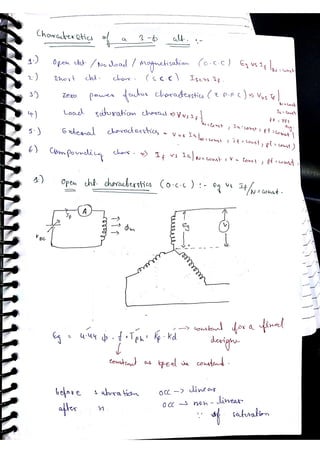 Characteristics of a 3-ϕ alt. :-
1.) Open ckt. / No load / Magnetisation (O.C.C) Eg vs If | N = const
2.) Short ckt. char. (S.C.C) Isc vs If.
3.) Zero power factor characteristics (Z.P.F.C) ⇒ V vs If | N = const
4.) Load saturation charact ⇒ V vs If | N = const, Ia = const, pf = const
5.) External characteristics ⇒ V vs Ia | N = const, If = const, pf = const
6) Compounding char. ⇒ If vs Ia | N = const, V = const, pf = const.
1.) Open ckt. characteristics (O.C.C) :- Eg vs If / N = const.
A
If
ϕm
Eg
V
VDC
Eg = 4.44 ϕ . f . Tph . Kp . Kd → constant for a fixed
design.
constant as speed is constant.
before saturation OCC → linear
after " OCC → non-linear
∵ of saturation